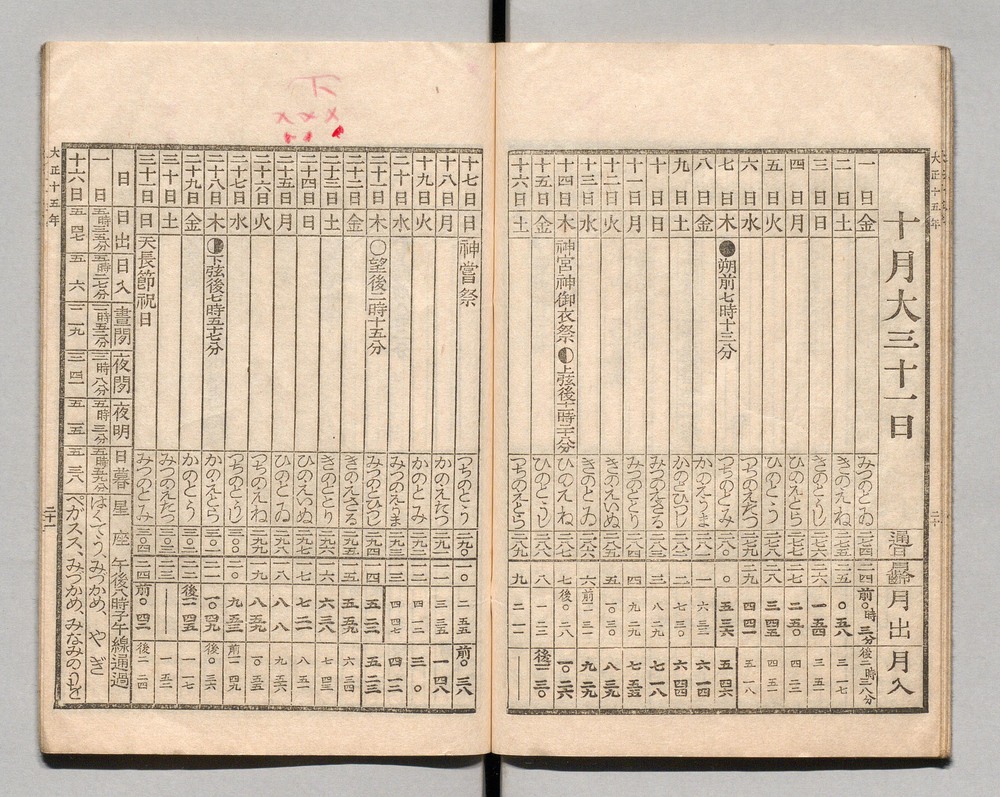 大正十五年
十月大三十一日
通日 月齢 月出 月入
一日 金 みつのとゐ 二七四 二四 前〇時三分 後二時三八分
二日 土 きのえね 二七五 二五 〇 五八 三 一七
三日 日 きのとうし 二七六 二六 一 五四 三 五一
四日 月 ひのえとら 二七七 二七 二 五〇 四 二三
五日 火 ひのとう 二七八 二八 三 四五 四 五一
六日 水 つちのえたつ 二七九 二九 四 四一 五 一八
七日 木 ●朔前七時十三分 つちのとみ 二八〇 〇 五 三六 五 四六
八日 金 かのえうま 二八一 一 六 三三 六 一四
九日 土 かのとひつじ 二八二 二 七 三〇 六 四四
十日 日 みつのえさる 二八三 三 八 七 一八
十一日 月 みつのととり 二八四 四 九 七 五五
十二日 火 きのえいぬ 二八五 五 八 三九
十三日 水 きのとゐ 二八六 六 前一一 九 二九
十四日 木 神宮神御衣祭 ◐上弦後十一時二十八分 ひのえね 二八七 七 後〇 一〇 二六
十五日 金 ひのとうし 二八八 八 一 後一一 三〇
十六日 土 つちのえとら 二八九 九 二 一一 ―
二十
十七日 日 神嘗祭 つちのとう 二九〇 一〇 二 五五 前〇 三八
十八日 月 かのえたつ 二九一 一一 三 三五 一 四八
十九日 火 かのとみ 二九二 一二 四 一二 三 〇
二十日 水 みつのえうま 二九三 一三 四 四七 四 一二
二十一日 木 ○望後二時十五分 みつのとひつじ 二九四 一四 五 二二 五 二三
二十二日 金 きのえさる 二九五 一五 五 五九 六 三四
二十三日 土 きのととり 二九六 一六 六 三八 七 四三
二十四日 日 ひのえいぬ 二九七 一七 七 二一 八 五一
二十五日 月 ひのとゐ 二九八 一八 八 八 九 五六
二十六日 火 つちのえね 二九九 一九 八 五九 一〇 五五
二十七日 水 つちのとうし 三〇〇 二〇 九 五三 前一一 四九
二十八日 木 ◑下弦後七時五十七分 かのえとら 三〇一 二一 一〇 四九 後〇 三六
二十九日 金 かのとう 三〇二 二二 後一一 四五 一 一七
三十日 土 みつのえたつ 三〇三 二三 ― 一 五二
三十一日 日 天長節祝日 みつのとみ 三〇四 二四 前〇 四二 後二 二四
日 日出 日入 昼間 夜間 夜明 日暮 星座 午後八時子午線通過
一日 五時三五分 五時二七分 一一時五二分 一二時八分 五時三分 五時五九分 はくてう、みづかめ、やぎ
十六日 五 四七 五 六 一一 一九 一二 四一 五 一五 五 三八 ペガスス、みづかめ、みなみのうを
大正十五年
二十一
下
×××